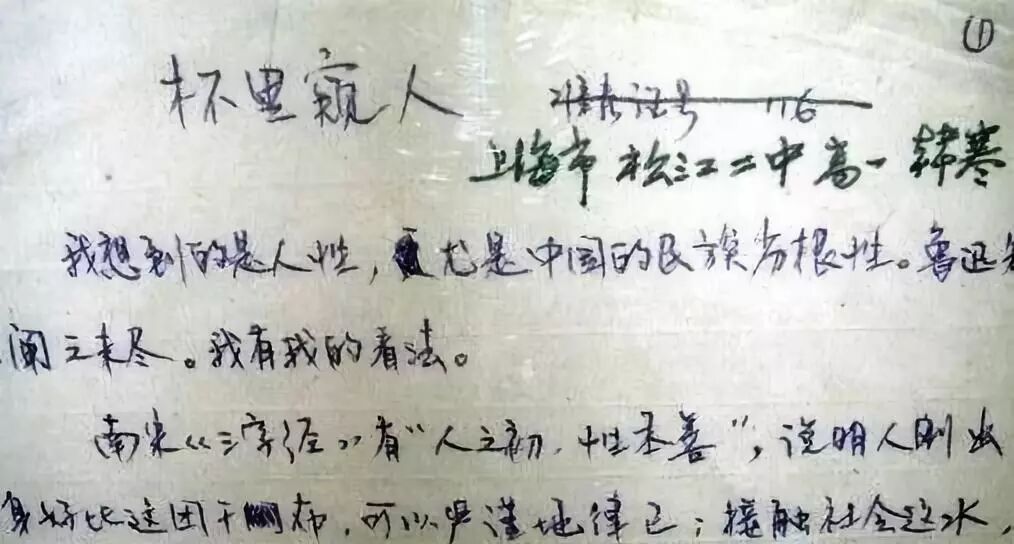 ①
杯里窥人
准考证号 116
上海市松江二中高一 韩寒
我想到的是人性，尤是中国的民族劣根性。鲁迅先
阐之未尽。我有我的看法。
南宋《三字经》有“人之初，性本善”，说明人刚出
身好比这团干布，可以严谨地律己；接触社会这水，